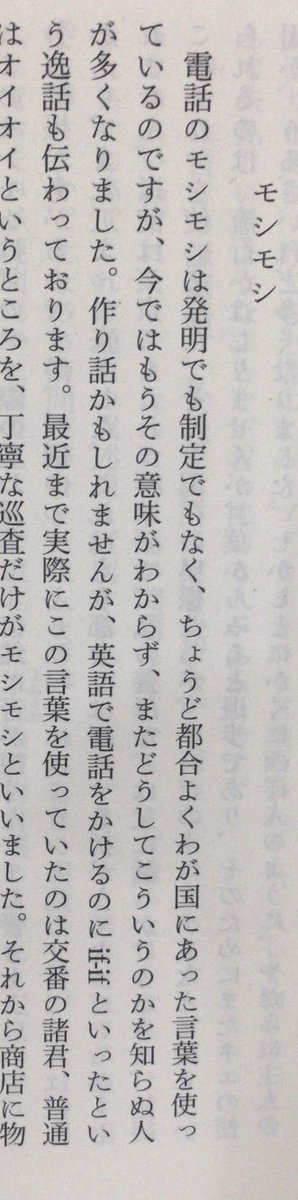 モシモシ
電話のモシモシは発明でも制定でもなく、ちょうど都合よくわが国にあった言葉を使っ
ているのですが、今ではもうその意味がわからず、またどうしてこういうのかを知らぬ人
が多くなりました。作り話かもしれませんが、英語で電話をかけるのにif-ifといったとい
う逸話も伝わっております。最近まで実際にこの言葉を使っていたのは交番の諸君、普通
はオイオイというところを、丁寧な巡査だけがモシモシといいました。それから商店に物